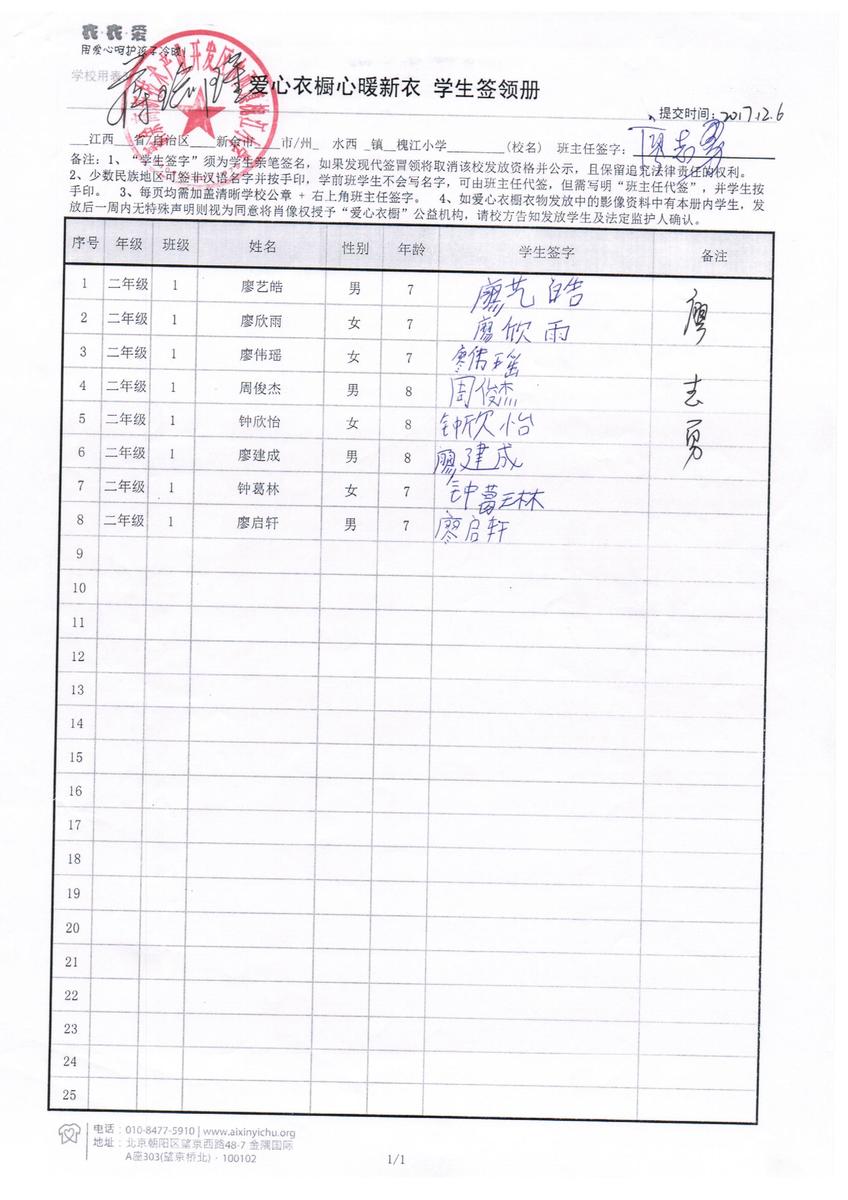 衣·衣·爱
用爱心呵护孩子冷暖!
学校用表
爱心衣橱心暖新衣 学生签领册
提交时间: 2017.12.6
___江西___省/自治区____新余市____市/州_ 水西 _镇__槐江小学_________(校名) 班主任签字: 廖志勇
备注: 1、“学生签字”须为学生亲笔签名,如果发现代签冒领将取消该校发放资格并公示,且保留追究法律责任的权利。
2、少数民族地区可签非汉语名字并按手印,学前班学生不会写名字,可由班主任代签,但需写明“班主任代签”,并学生按
手印。 3、每页均需加盖清晰学校公章 + 右上角班主任签字。 4、如爱心衣橱衣物发放中的影像资料中有本册内学生,发
放后一周内无特殊声明则视为同意将肖像权授予“爱心衣橱”公益机构,请校方告知发放学生及法定监护人确认。
序号 年级 班级 姓名 性别 年龄 学生签字 备注
1 二年级 1 廖艺皓 男 7 廖艺皓 廖
2 二年级 1 廖欣雨 女 7 廖欣雨
3 二年级 1 廖伟瑶 女 7 廖伟瑶
4 二年级 1 周俊杰 男 8 周俊杰 志
5 二年级 1 钟欣怡 女 8 钟欣怡 勇
6 二年级 1 廖建成 男 8 廖建成
7 二年级 1 钟葛林 女 7
8 二年级 1 廖启轩 男 7 廖启轩
9
10
11
12
13
14
15
16
17
18
19
20
21
22
23
24
25
电话: 010-8477-5910 | www.aixinyichu.org
地址: 北京朝阳区望京西路48-7 金隅国际
A座303(望京桥北) · 100102
1/1